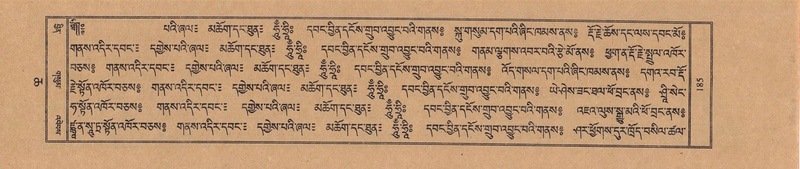 ༄༅། །པའི་ཞལ༔ མཆོག་དང་ཐུན༔ ཧཱུྃ་ཧྲཱིཿ དབང་བྱིན་དངོས་གྲུབ་འབྱུང་བའི་གནས༔ སྐུ་གསུམ་དག་པའི་ཞིང་ཁམས་ནས༔ རྡོ་རྗེ་ཆོས་དང་ལས་དབང་མོ༔
གནས་འདིར་དབང༔ དགྱེས་པའི་ཞལ༔ མཆོག་དང་ཐུན༔ ཧཱུྃ་ཧྲཱིཿ དབང་བྱིན་དངོས་གྲུབ་འབྱུང་བའི་གནས༔ གནམ་ལྕགས་འབར་བའི་རྩེ་མོ་ནས༔ ཕྱག་ན་རྡོ་རྗེ་སྤྲུལ་འཁོར་
བཅས༔ གནས་འདིར་དབང༔ དགྱེས་པའི་ཞལ༔ མཆོག་དང་ཐུན༔ ཧཱུྃ་ཧྲཱིཿ དབང་བྱིན་དངོས་གྲུབ་འབྱུང་བའི་གནས༔ འོད་གསལ་དག་པའི་ཞིང་ཁམས་ནས༔ དགའ་རབ་རྡོ་
རྗེ་སྟོན་འཁོར་བཅས༔ གནས་འདིར་དབང༔ དགྱེས་པའི་ཞལ༔ མཆོག་དང་ཐུན༔ ཧཱུྃ་ཧྲཱིཿ དབང་བྱིན་དངོས་གྲུབ་འབྱུང་བའི་གནས༔ ཡེ་ཤེས་ཟང་ཐལ་ཕོ་བྲང་ནས༔ ཤྲཱི་སེང་
ཧ་སྟོན་འཁོར་བཅས༔ གནས་འདིར་དབང༔ དགྱེས་པའི་ཞལ༔ མཆོག་དང་ཐུན༔ ཧཱུྃ་ཧྲཱིཿ དབང་བྱིན་དངོས་གྲུབ་འབྱུང་བའི་གནས༔ འཇའ་ལུས་སྒྱུ་མའི་ཕོ་བྲང་ནས༔
ཛྙཱན་སཱུ་ཏྲ་སྟོན་འཁོར་བཅས༔ གནས་འདིར་དབང༔ དགྱེས་པའི་ཞལ༔ མཆོག་དང་ཐུན༔ ཧཱུྃ་ཧྲཱིཿ དབང་བྱིན་དངོས་གྲུབ་འབྱུང་བའི་གནས༔ ཤར་ཕྱོགས་དུར་ཁྲོད་བསིལ་ཚལ་
185